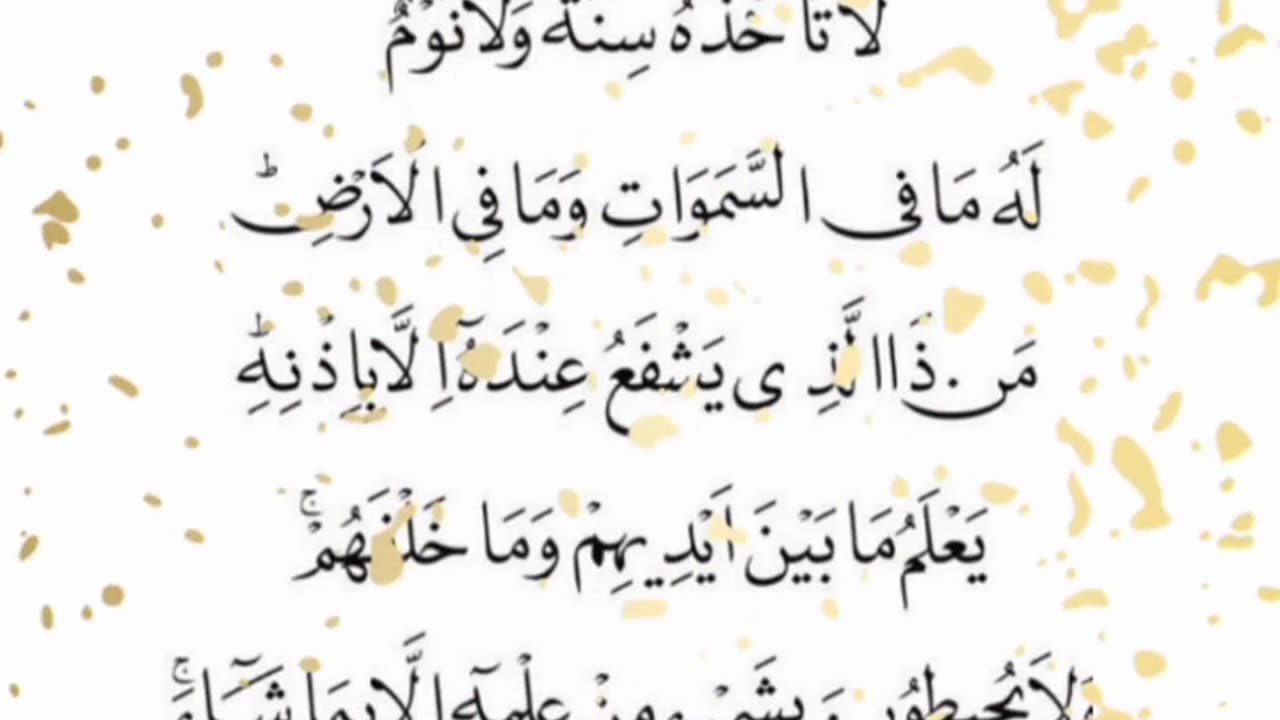 لَا تَاْخُذُهٗ سِنَةٌ وَّلَا نَوْمٌ
لَهٗ مَا فِی السَّمٰوَاتِ وَمَا فِی الْاَرْضِ ؕ
مَنْ ذَا الَّذِی یَشْفَعُ عِنْدَهٗۤ اِلَّا بِاِذْنِهٖ ؕ
یَعْلَمُ مَا بَیْنَ اَیْدِیْهِمْ وَمَا خَلْفَهُمْ ۚ
وَلَا یُحِیْطُوْنَ بِشَیْءٍ مِّنْ عِلْمِهٖۤ اِلَّا بِمَا شَآءَ ۚ